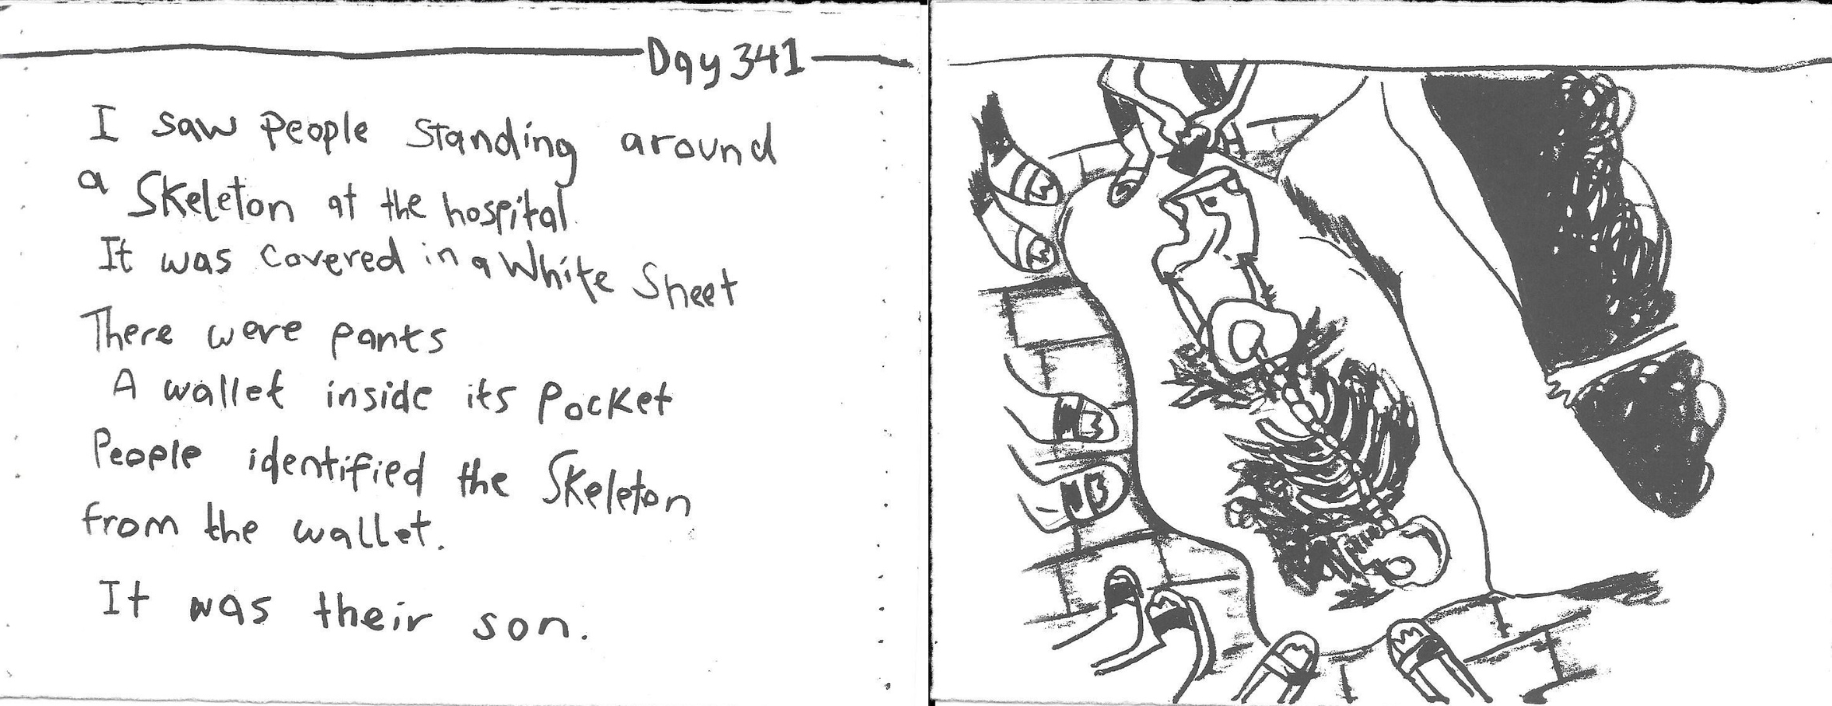 Day 341
I saw People Standing around
a Skeleton at the hospital.
It was covered in a White Sheet
There were pants
A wallet inside its Pocket
People identified the Skeleton
from the wallet.
It was their son.